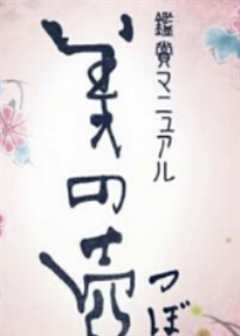 鑑賞マニュアル
美の壺
つぼ